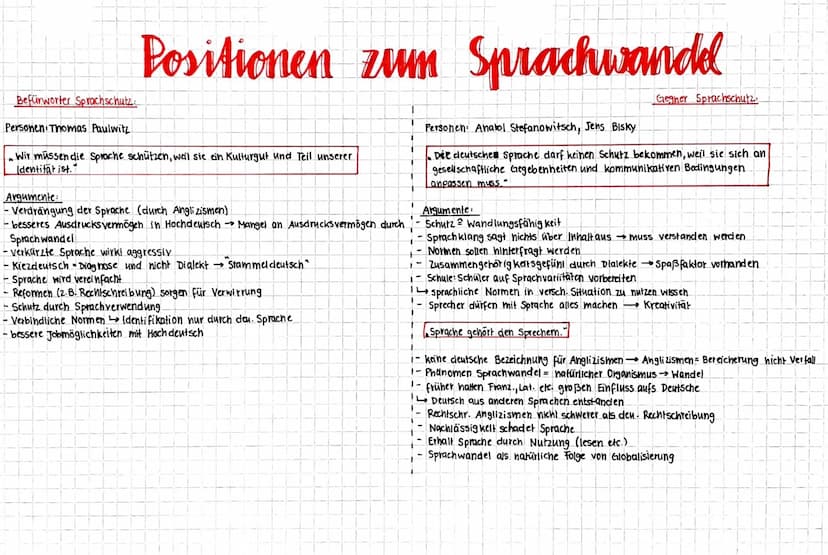 Positionen zum Sprachwandel
Befürworter Sprachschutz:
Personen: Thomas Paulwitz
„Wir müssen die Sprache schützen, weil sie ein Kulturgut und Teil unserer
Identität ist."
Argumente:
- Verdrängung der Sprache (durch Anglizismen)
- besseres Ausdrucksvermögen in Hochdeutsch → Mangel an Ausdrucksvermögen durch
Sprachwandel
- verkürzte Sprache wirkt aggressiv
- Kiezdeutsch = Diagnose und nicht Dialekt → "Stammeldeutsch"
- Sprache wird vereinfacht
- Reformen (z.B. Rechtschreibung) sorgen für Verwirrung
- Schutz durch Sprachverwendung
- Verbindliche Normen ↳ Identifikation nur durch deu. Sprache
- bessere Jobmöglichkeiten mit Hochdeutsch
Gegner Sprachschutz:
Personen: Anatol Stefanowitsch, Jens Bisky
„Die deutsche Sprache darf keinen Schutz bekommen, weil sie sich an
gesellschaftliche Gegebenheiten und kommunikativen Bedingungen
anpassen muss."
Argumente:
- Schutz? Wandlungsfähigkeit
- Sprachklang sagt nichts über Inhalt aus → muss verstanden werden
- Normen sollen hinterfragt werden
- Zusammengehörigkeitsgefühl durch Dialekte → Spaßfaktor vorhanden
- Schule: Schüler auf Sprachvarietäten vorbereiten
↳ sprachliche Normen in versch. Situation zu nutzen wissen
- Sprecher dürfen mit Sprache alles machen → Kreativität
„Sprache gehört den Sprechern."
- keine deutsche Bezeichnung für Anglizismen → Anglizismen = Bereicherung nicht Verfall
- Phänomen Sprachwandel = natürlicher Organismus → Wandel
- früher hatten Franz., Lat. etc. großen Einfluss aufs Deutsche
↳ Deutsch aus anderen Sprachen entstanden
- Rechtschr. Anglizismen nicht schwerer als deu. Rechtschreibung
- Nachlässigkeit schadet Sprache
- Erhalt Sprache durch Nutzung (lesen etc.)
- Sprachwandel als natürliche Folge von Globalisierung